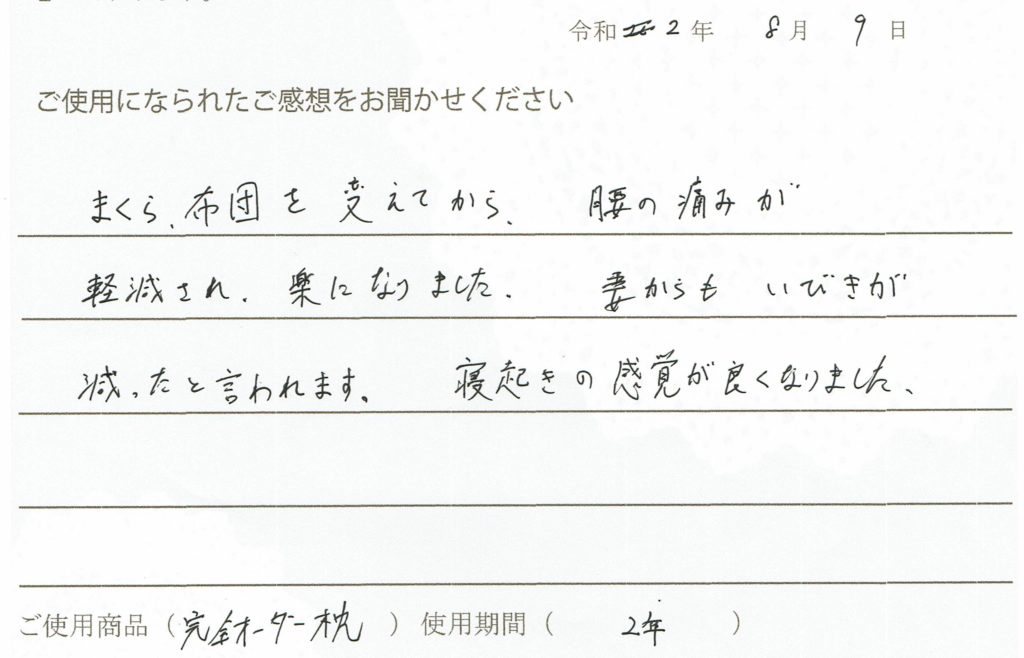 令和2年 8月 9日
ご使用になられたご感想をお聞かせください
まくら、布団を変えてから、腰の痛みが
軽減され、楽になりました。妻からもいびきが
減ったと言われます。寝起きの感覚が良くなりました、
ご使用商品（完全オーダー枕）使用期間（2年）